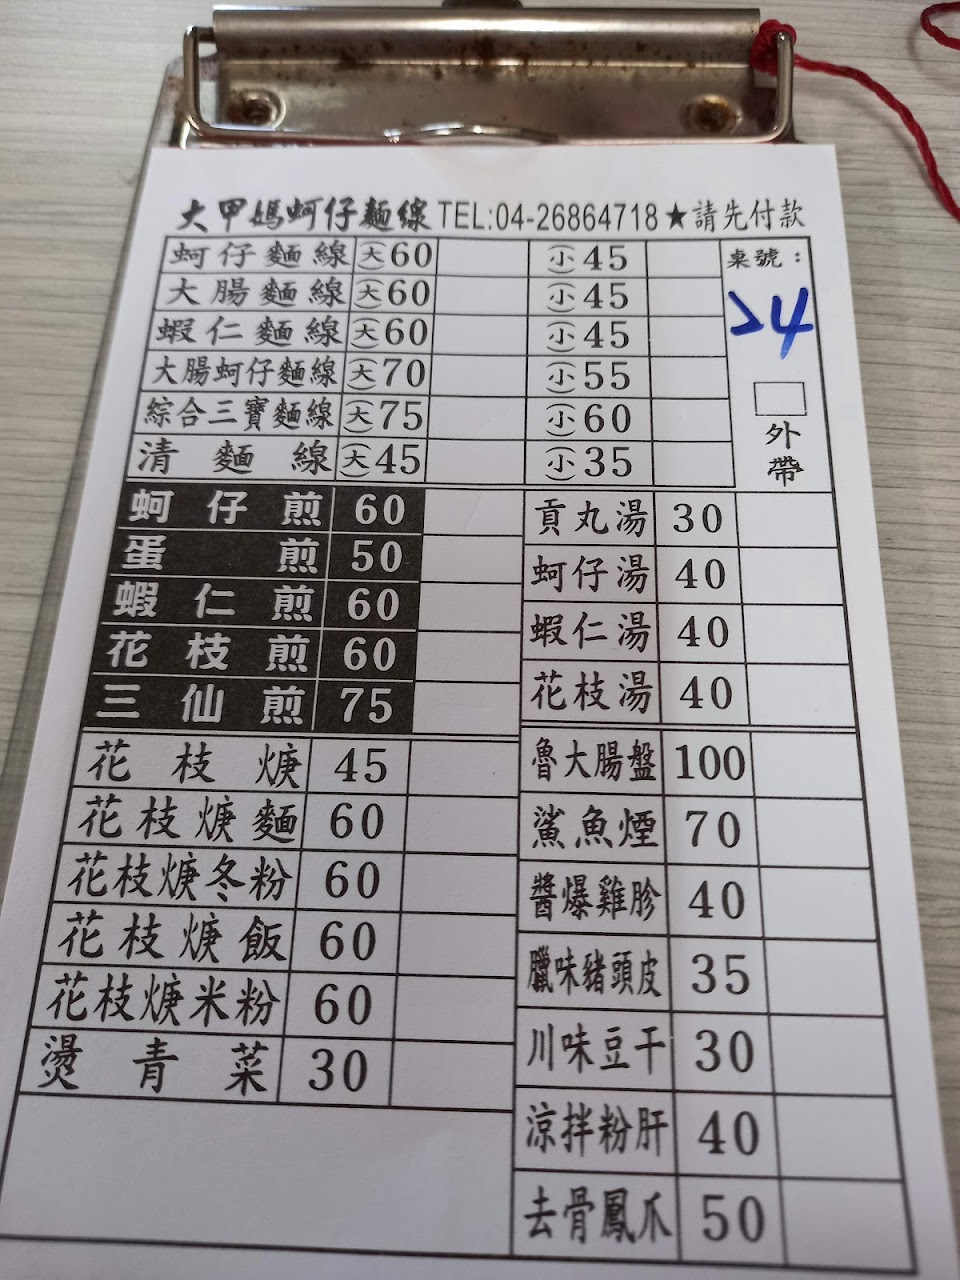 大甲媽蚵仔麵線 TEL:04-26864718★請先付款
蚵仔麵線 (大)60 (小)45
大腸麵線 (大)60 (小)45
蝦仁麵線 (大)60 (小)45
大腸蚵仔麵線 (大)70 (小)55
綜合三寶麵線 (大)75 (小)60
清麵線 (大)45 (小)35
桌號：
24
外帶
蚵仔煎 60
蛋煎 50
蝦仁煎 60
花枝煎 60
三仙煎 75
花枝焿 45
花枝焿麵 60
花枝焿冬粉 60
花枝焿飯 60
花枝焿米粉 60
燙青菜 30
貢丸湯 30
蚵仔湯 40
蝦仁湯 40
花枝湯 40
魯大腸盤 100
鯊魚煙 70
醬爆雞胗 40
臘味豬頭皮 35
川味豆干 30
涼拌粉肝 40
去骨鳳爪 50